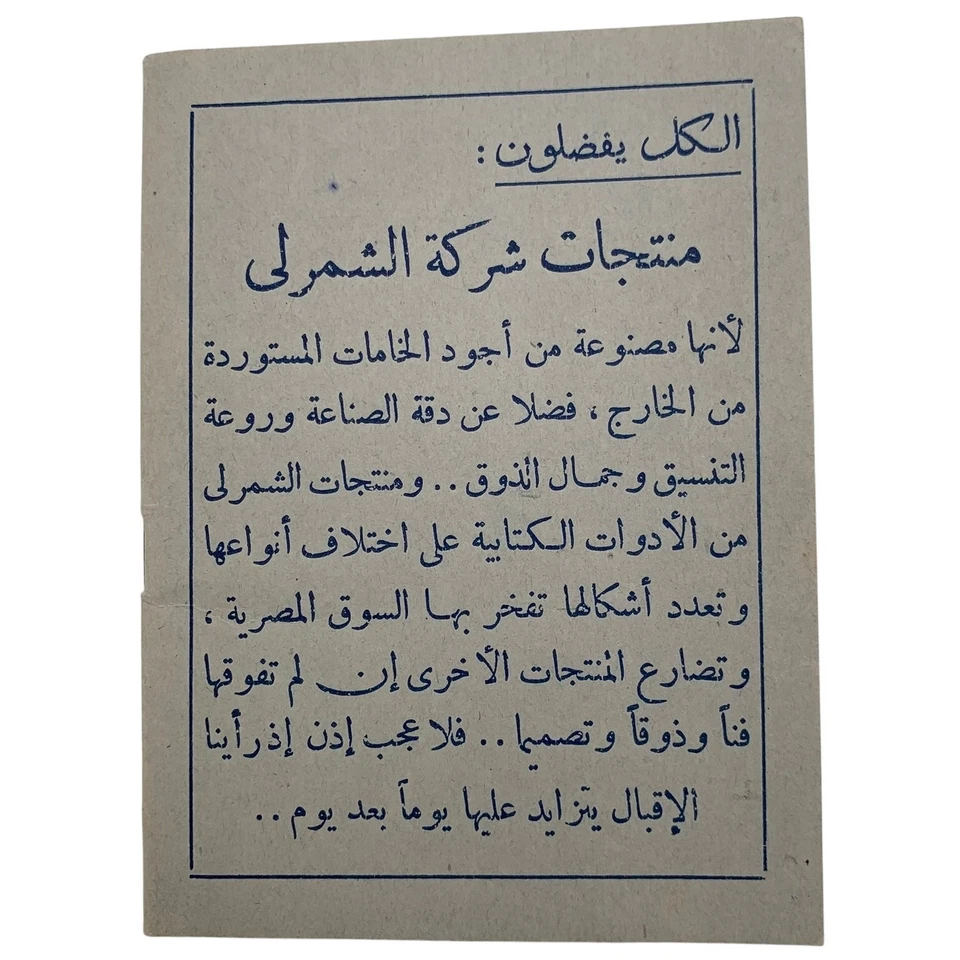 الكل يفضلون :
منتجات شركة الشمرلى
لأنها مصنوعة من أجود الخامات المستوردة
من الخارج ، فضلا عن دقة الصناعة وروعة
التنسيق وجمال الذوق .. ومنتجات الشمرلى
من الأدوات الكتابية على اختلاف أنواعها
وتعدد أشكالها تفخر بها السوق المصرية ،
وتضارع المنتجات الأخرى إن لم تفوقها
فناً وذوقاً وتصميما .. فلا عجب إذن إذ رأينا
الإقبال يتزايد عليها يوماً بعد يوم ..